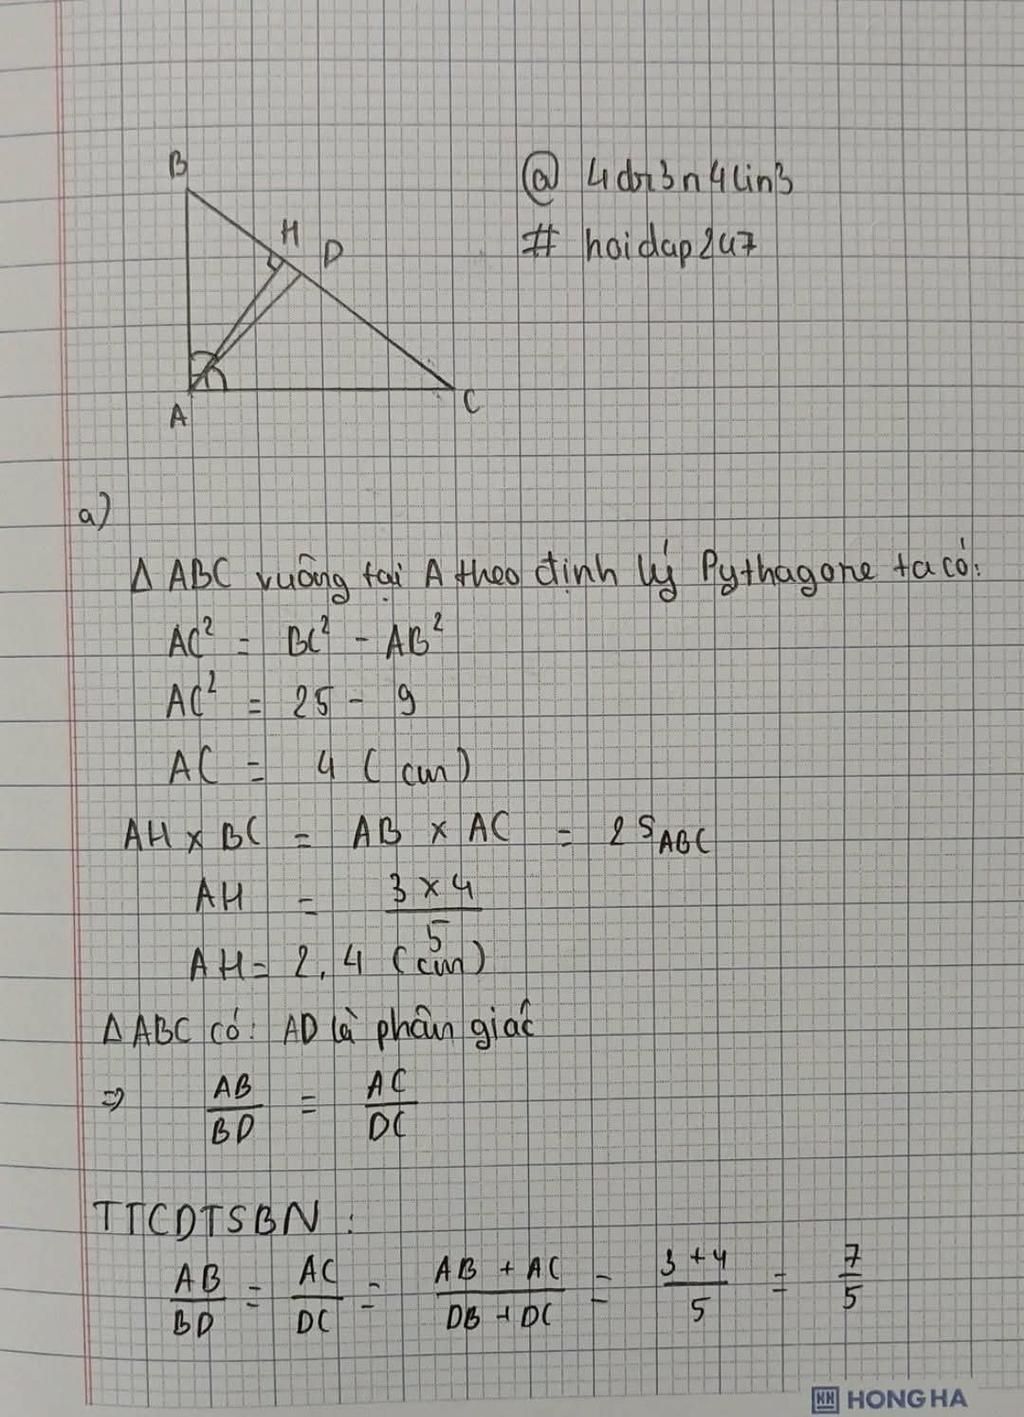 B
H
D
A
C
@ 4dr3n4lin3
# hoidap247
a)
Δ ABC vuông tại A theo định lý Pythagore ta có:
AC² = BC² - AB²
AC² = 25 - 9
AC = 4 (cm)
AH x BC = AB x AC = 2 S_ABC
AH = 3 x 4 / 5
AH = 2,4 (cm)
Δ ABC có: AD là phân giác
=> AB/BD = AC/DC
TTCDTSBN:
AB/BD = AC/DC = AB + AC / DB + DC = 3 + 4 / 5 = 7/5
HONG HA